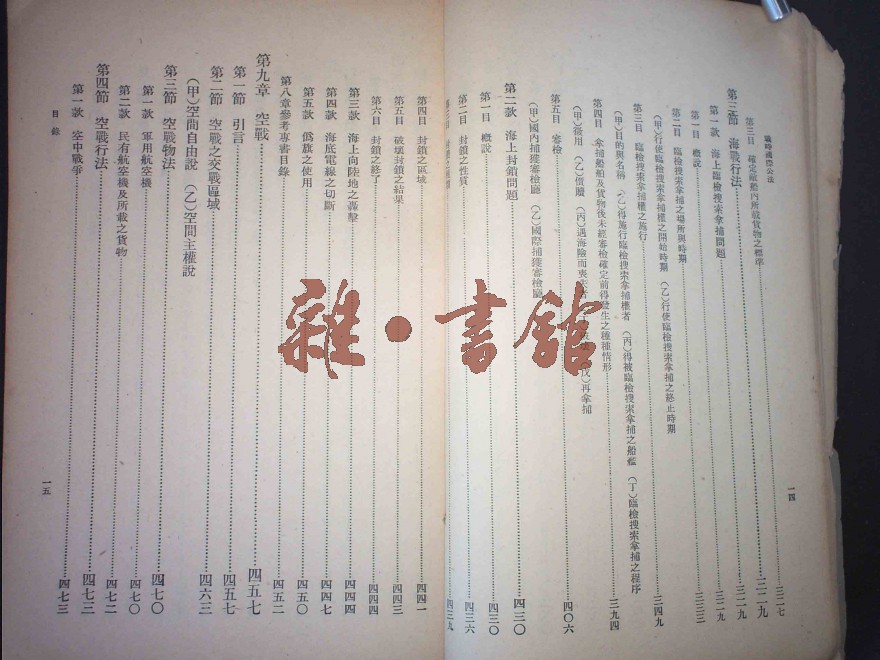 戰時國際公法
一四
第三目 確定敵船內所載貨物之標準 三二七
第三節 海戰行法 三二九
第一款 海上臨檢搜索拿捕問題 三二九
第一目 概說 三三三
第二目 臨檢搜索拿捕之場所與時期 三四九
(甲)行使臨檢搜索拿捕權之開始時期 (乙)行使臨檢搜索拿捕之終止時期
第三目 臨檢搜索拿捕權之施行 三九四
(甲)目的與名稱 (乙)得施行臨檢搜索拿捕權者 (丙)得被臨檢搜索拿捕之船艦 (丁)臨檢搜索拿捕之程序
第四目 拿捕船舶及貨物後未經審檢確定前得發生之種種情形
(甲)徵用 (乙)價贖 (丙)遇海險而喪失 再拿捕
第五目 審檢 四〇六
(甲)國內捕獲審檢廳 (乙)國際捕獲審檢廳
第二款 海上封鎖問題 四三〇
第一目 概說 四三〇
第二目 封鎖之性質 四三六
第三目 封鎖之 四三九
第四目 封鎖之區域 四四一
第五目 破壞封鎖之結果 四四三
第六目 封鎖之終了 四四四
第三款 海上向陸地之轟擊 四四四
第四款 海底電線之切斷 四四七
第五款 僞旗之使用 四五〇
第八章參考專書目錄 四五二
第九章 空戰 四五七
第一節 引言 四五七
第二節 空戰之交戰區域 四六三
(甲)空間自由說 (乙)空間主權說
第三節 空戰物法 四七〇
第一款 軍用航空機 四七〇
第二款 民有航空機及所載之貨物 四七二
第四節 空戰行法 四七三
第一款 空中戰爭 四七三
目錄
一五
雜·書館